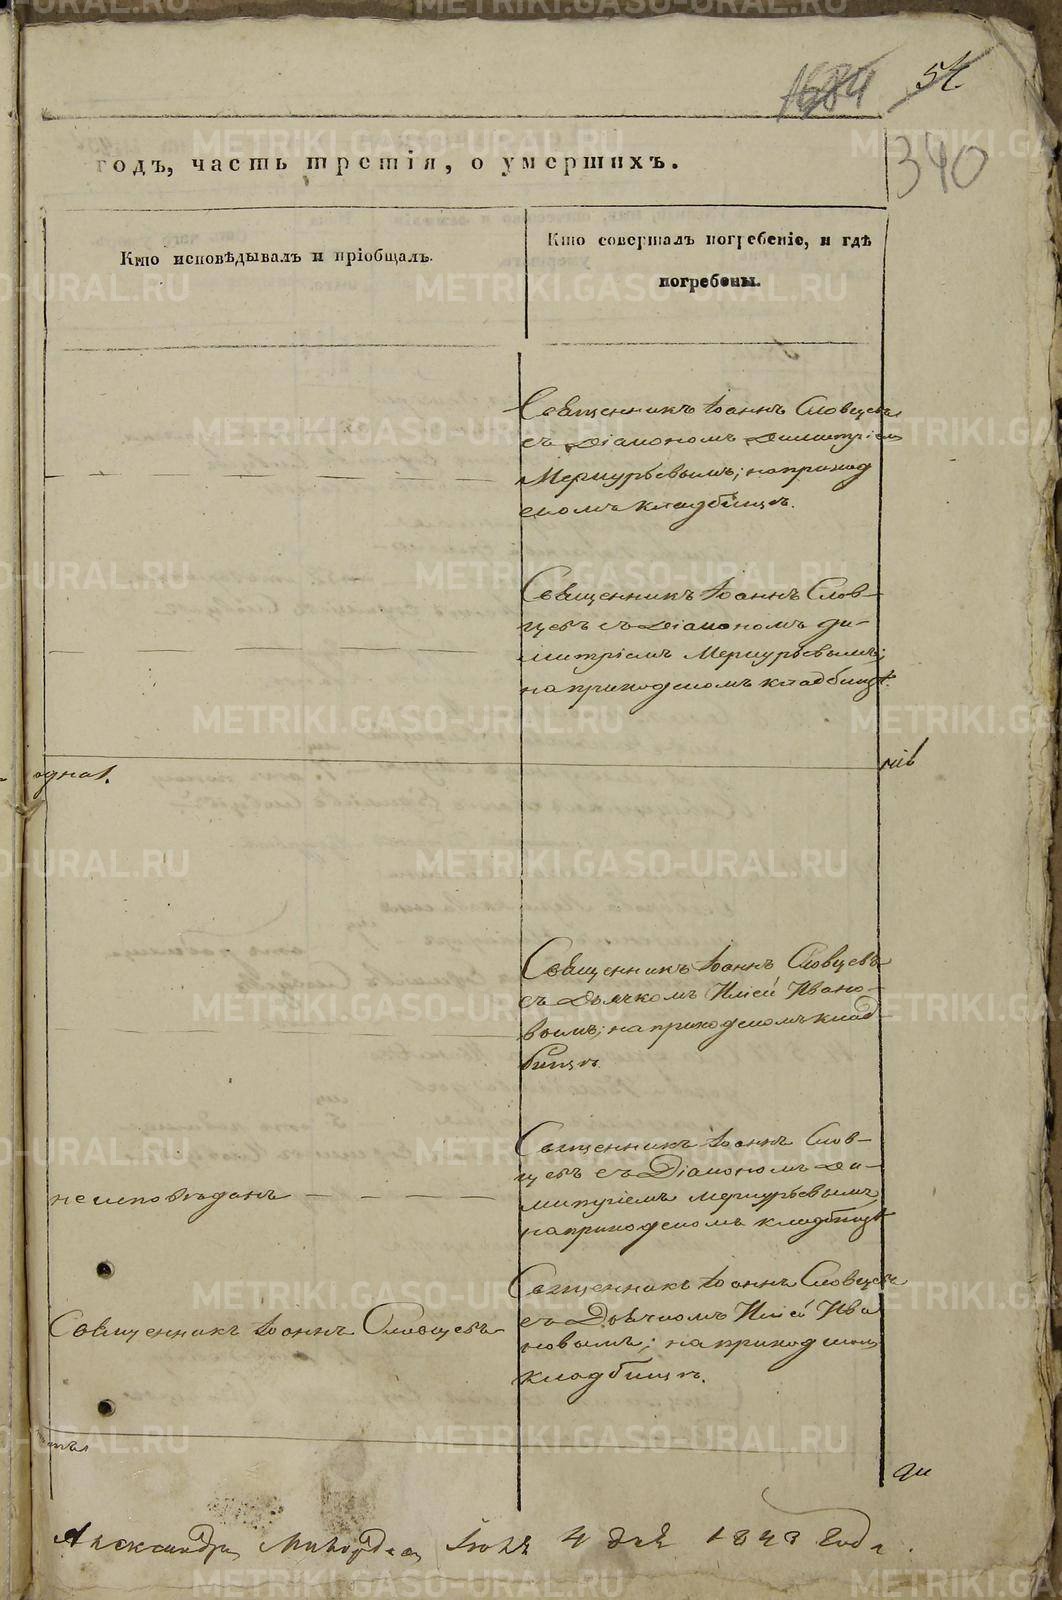 54
340
годъ, часть третія, о умершихъ.
Кто исповѣдывалъ и пріобщалъ.
Кто совершалъ погребеніе, и гдѣ
погребены.
Священникъ Іоаннъ Словцевъ
съ Діакономъ Димитріем
Меркурьевымъ; на приход
скомъ кладбищѣ.
Священникъ Іоаннъ Слов-
цевъ съ Діакономъ Ди-
митріемъ Меркурьевымъ;
на приходскомъ кладбищѣ.
одна
Священникъ Іоаннъ Словцевъ
съ Дьячкомъ Иліей Ивано-
вымъ; на приходскомъ клад
бищѣ.
неисповѣданъ
Священникъ Іоаннъ Слов-
цевъ съ Діакономъ Ди-
митріемъ Меркурьевымъ
на приходскомъ кладбищѣ
Священникъ Іоаннъ Словцевъ
Священникъ Іоаннъ Словцевъ
съ Дьячкомъ Иліей Ива
новымъ; на приходском
кладбищѣ.
4 дня 1843 года.
METRIKI.GASO-URAL.RU